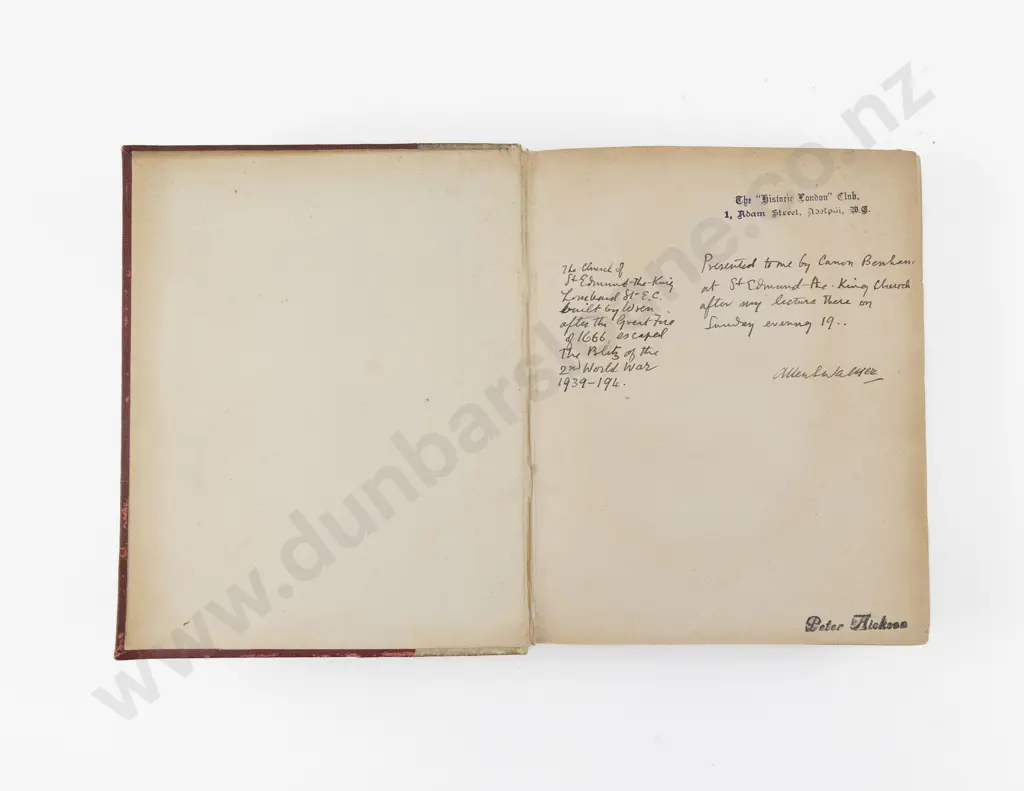 The "Historic London" Club,
1, Adam Street, Adelphi, W.C.
The Church of
St Edmund-the-King
Lombard St. E.C.
built by Wren
after the Great Fire
of 1666, escaped
the Blitz of the
2nd World War
1939-194.
Presented to me by Canon Benham
at St Edmund-the-King Church
after my lecture there on
Sunday evening 19..
Allen S. Walker
Peter Hickson
www.dunbarsloane.co.nz